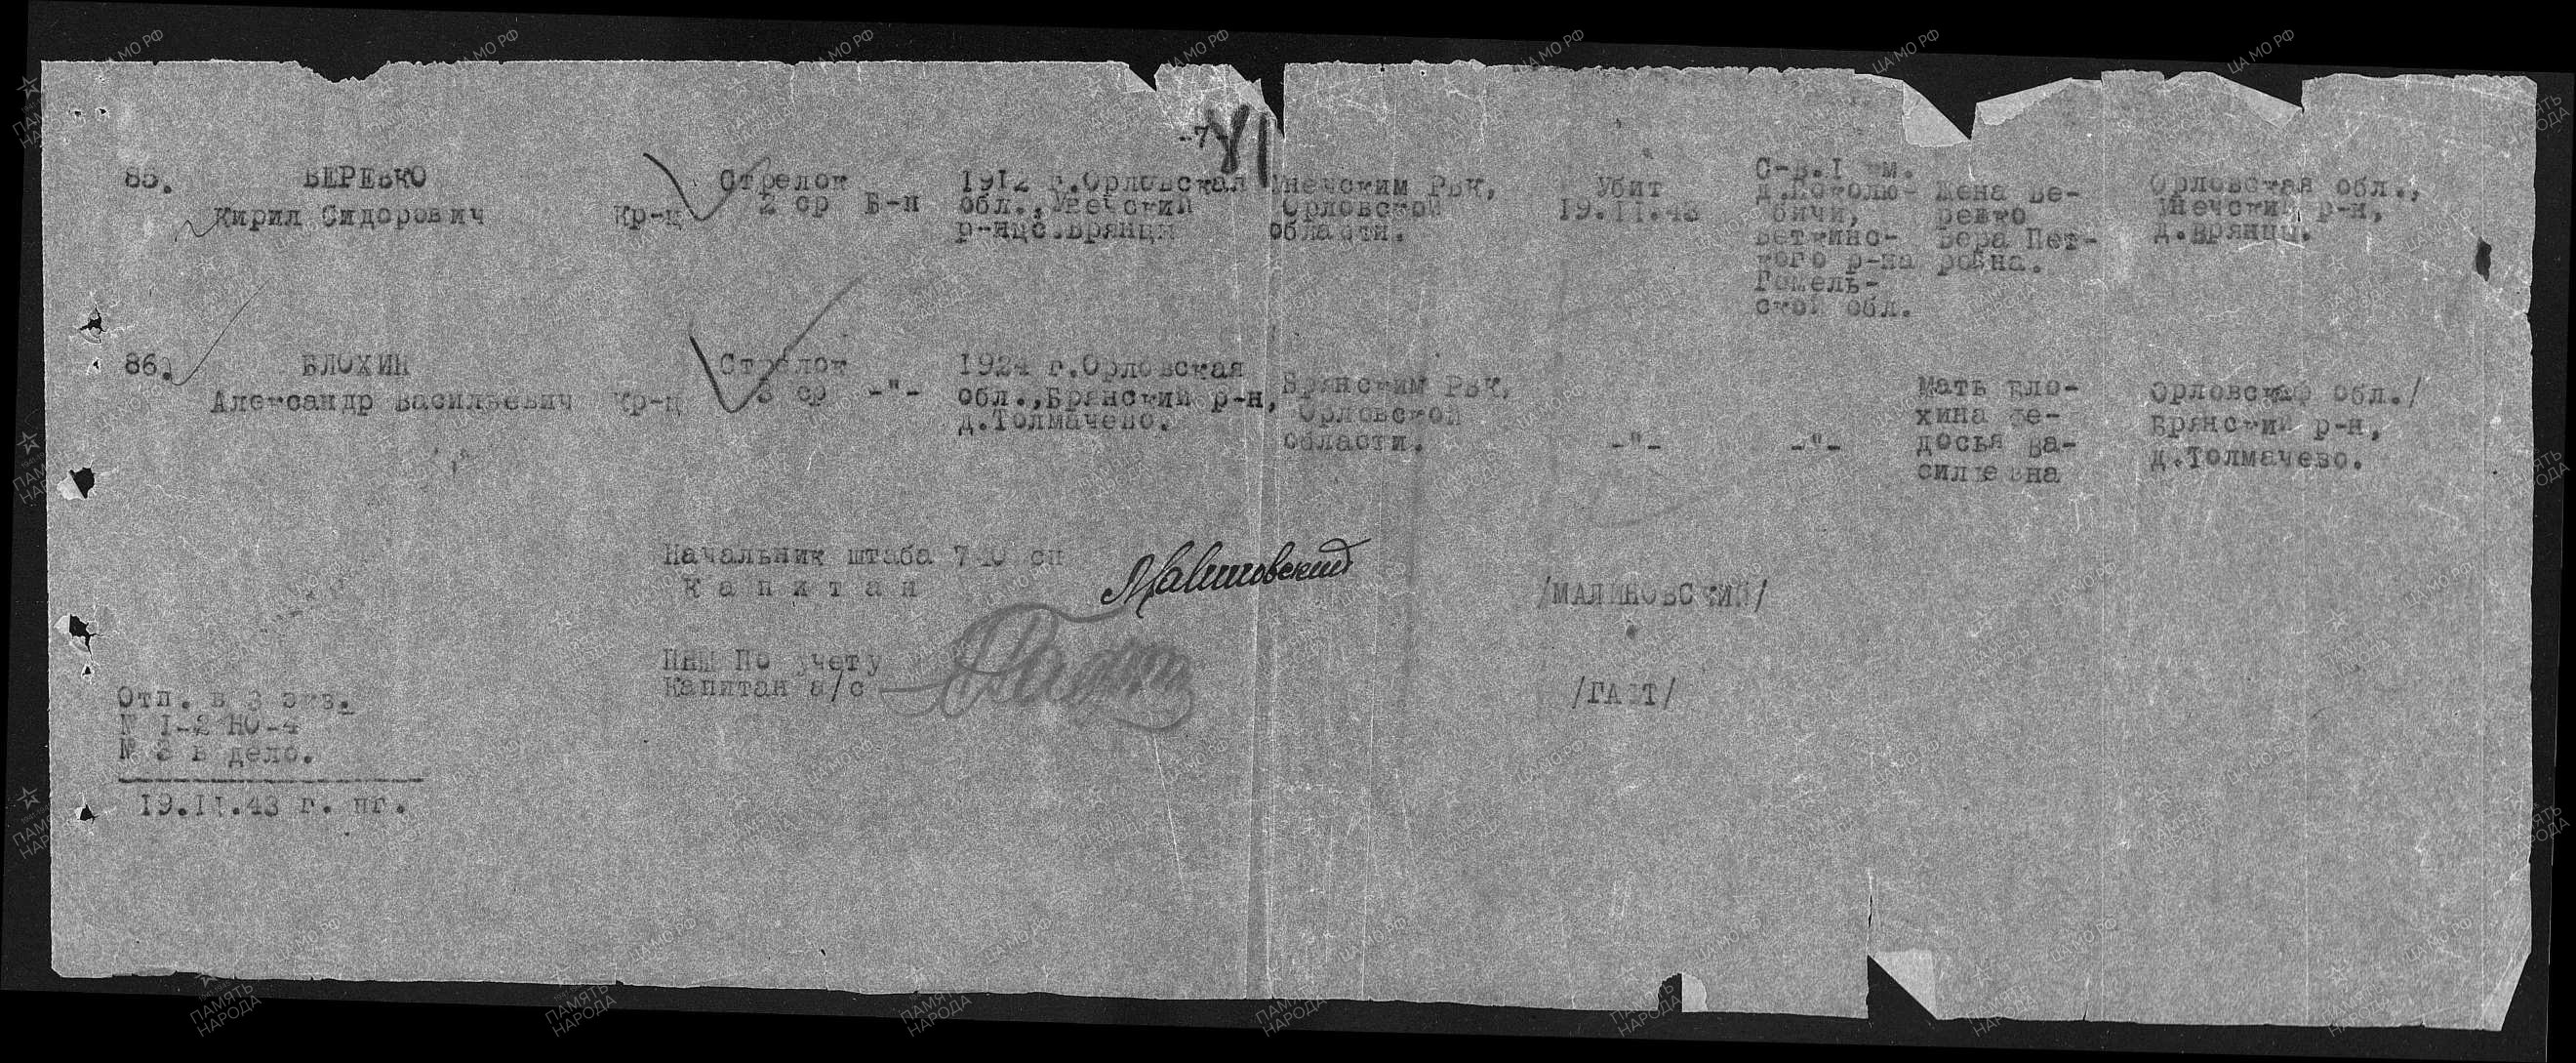 -7-
81
85. ВЕРЕВКО
Кирил Сидорович
Кр-ц
Стрелок
2 ср
Б-п
1912 г.Орловская
обл.,Унечский
р-нцс.Брянцы
Унечским РВК,
Орловской
области.
Убит
19.11.43
С-в.1 км.
д.Поколю-
бичи,
Веткинс-
кого р-на
Гомель-
ской обл.
Жена Ве-
ревко
Вера Пет-
ровна.
Орловская обл.,
Унечский р-н,
д.Брянцы.
86. БЛОХИН
Александр Васильевич
Кр-ц
Стрелок
3 ср
-"-
1924 г.Орловская
обл.,Брянский р-н,
д.Толмачево.
Брянским РВК,
Орловской
области.
-"-
-"-
Мать Бло-
хина Фе-
досья Ва-
сильевна
обл./
Брянский р-н,
д.Толмачево.
Начальник штаба сп
Капитан
Малиновский
/МАЛИНОВСКИЙ/
ПНШ По учету
Капитан а/с
Отп. в 3 экз.
№ 1-2 НО-4
№ 3 в дело.
19.11.43 г. пг.